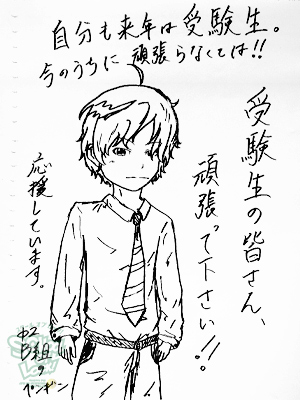 自分も来年は受験生。
今のうちに頑張らなくては!!
受験生の皆さん、
頑張って下さい!!
応援しています。
中2
B組の
ペンギン